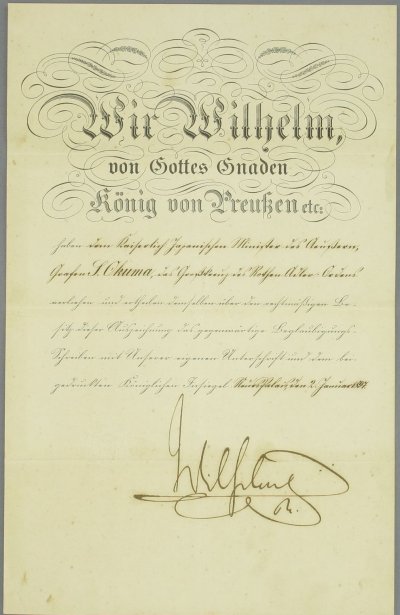 Wir Wilhelm,
von Gottes Gnaden
König von Preußen etc:
haben dem Kaiserlich Japanischen Minister des Aeussern,
Grafen S. Okuma, das Großkreuz des Rothen Adler-Ordens
verliehen und ertheilen demselben über den rechtmäßigen Be-
sitz dieser Auszeichnung das gegenwärtige Beglaubigungs-
Schreiben mit Unserer eigenen Unterschrift und dem bei-
gedruckten Königlichen Insiegel. Neues Palais, den 2. Januar
Wilhelm
R.